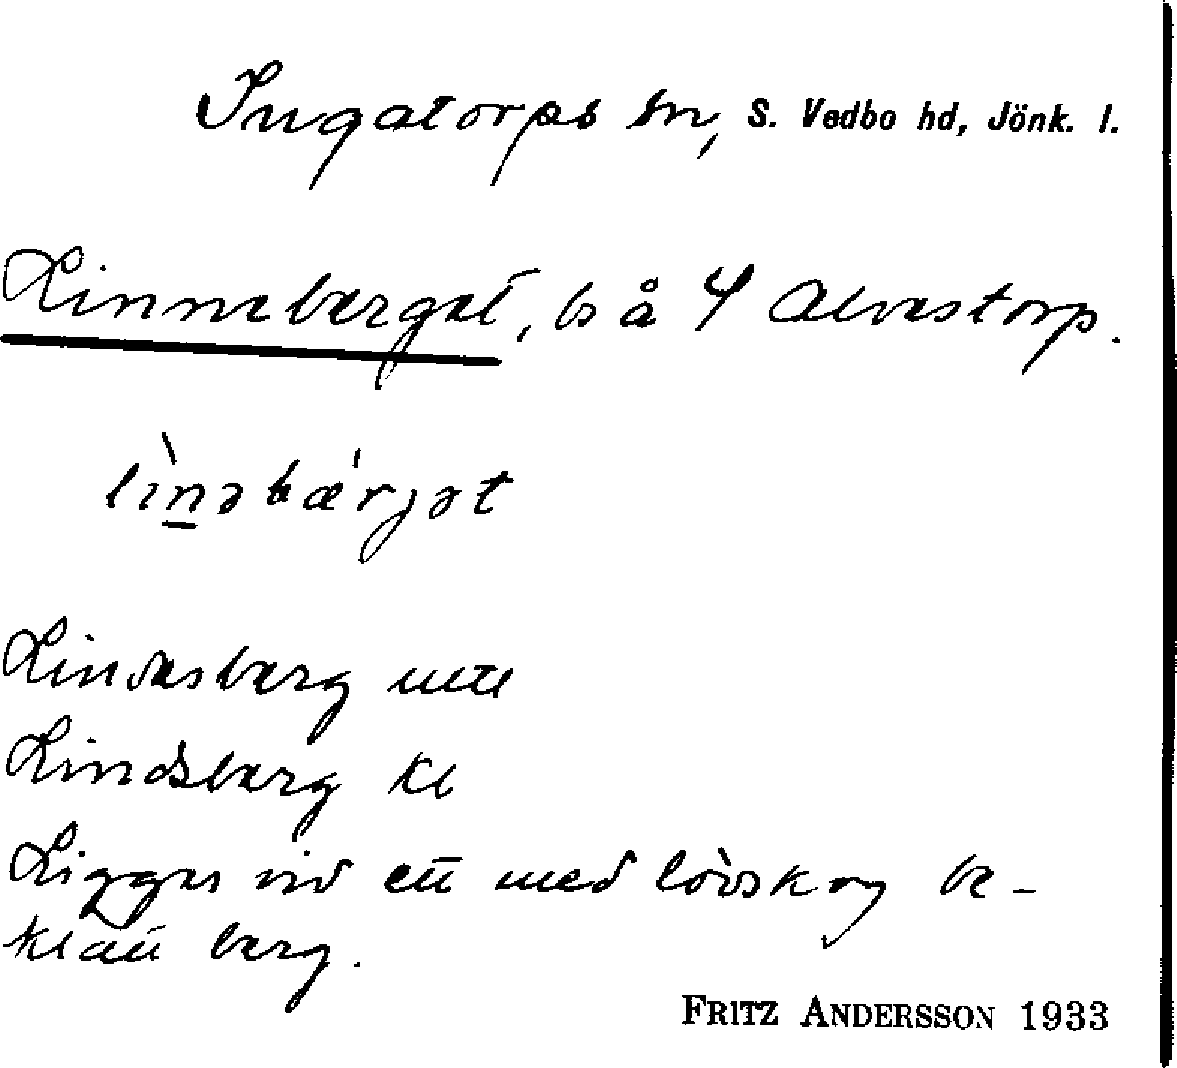 Ingatorps sn, S. Vedbo hd, Jönk. l.
Linneberget, bs å 4 Alvestorp.
lìnəbæ'rjət
Lindesberg uttl
Lindsberg kl
Ligger vid ett med lövskog be-
klätt berg.
FRITZ ANDERSSON 1933